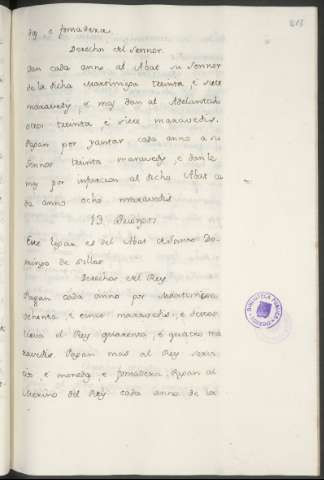 dos, e fonsadera.
213
Derechos del Sennor
dan cada anno al Abat su Sennor
de la dicha Martiniega treinta, e siete
maravedis, e mas dan al Adelantado
otros treinta, e siete maravedis.
Pagan por yantar cada anno a su
Sennor treinta maravedis, e dan le
mas por infurcion al dicho Abat ca
da anno ocho maravedis
13 Huerpos
Este logar es del Abat de Santo Do-
mingo de Sillos
Derechos del Rey
Pagan cada anno por Martiniega
ochenta, e cinco maravedis, e
lieva el Rey quarenta, e quatro ma
ravedis. Pagan mas al Rey servi-
cios e moneda, e fonsadera, Pagan al
Merino del Rey cada anno de los
BIBLIOTECA PUBLICA